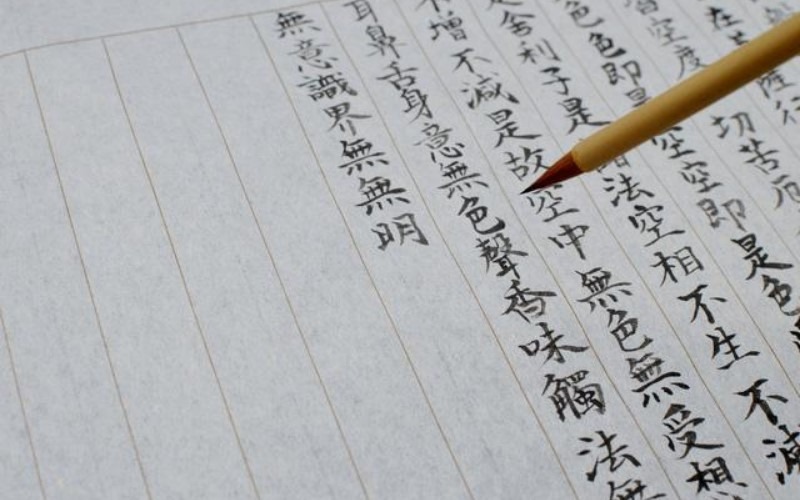 在菩薩行
皆空度切苦厄
色色即是空空即是色
舍利子是諸法空相不生不滅
不增不減是故空中無色無受想
耳鼻舌身意無色聲香味觸法無
無意識界無無明